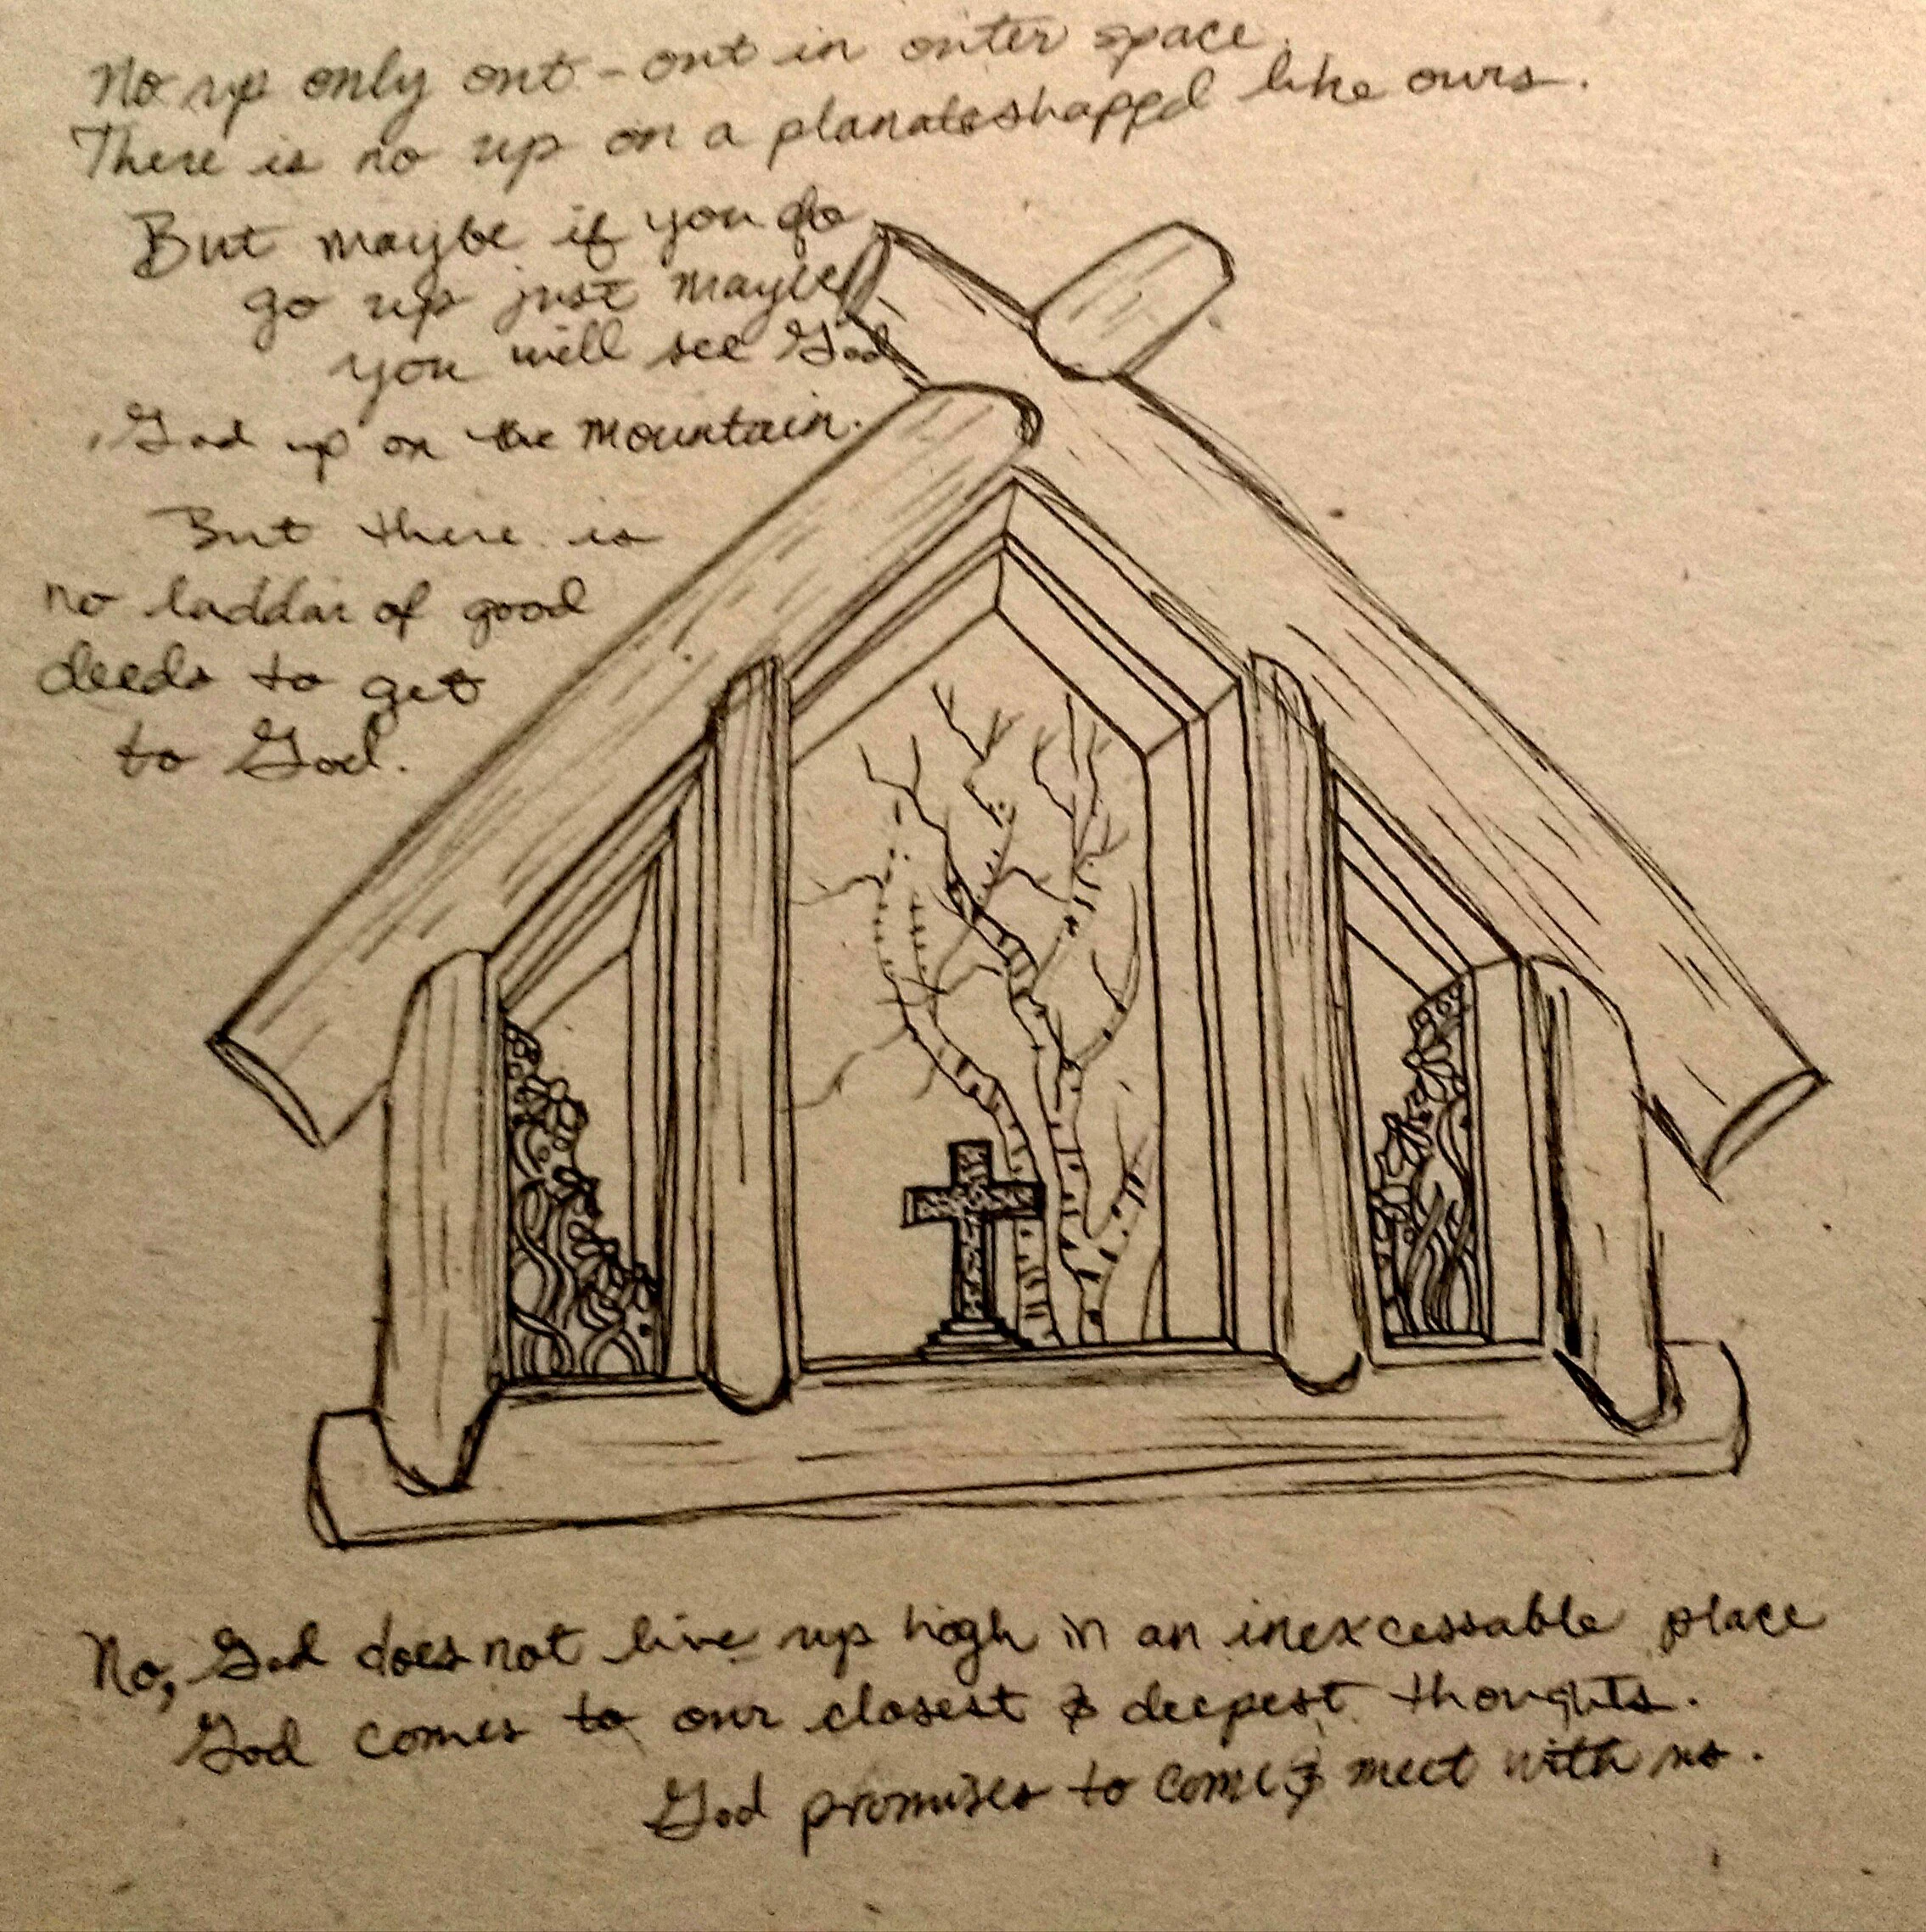 No up only out - out in outer space.
There is no up on a planateshappd like ours.
But maybe if you do
go up just maybe
you will see God
God up on the mountain.
But there is
no laddar of good
deeds to get
to God.
No, God does not live up high in an inexcessable place
God comes to our closest & deepest thoughts.
God promises to come & meet with us.